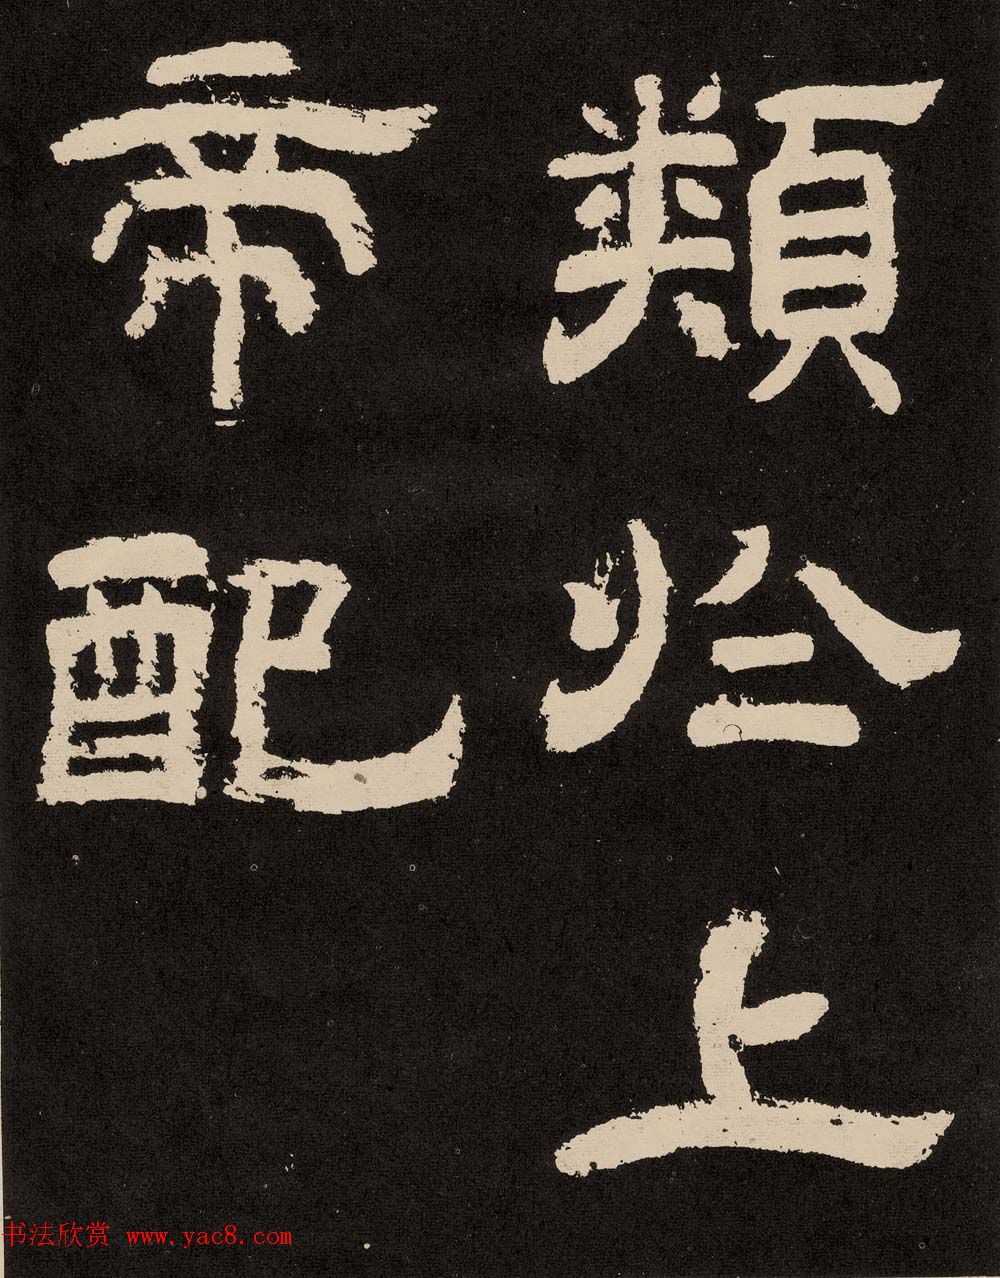 類於上
帝配
书法欣赏 www.yac8.com